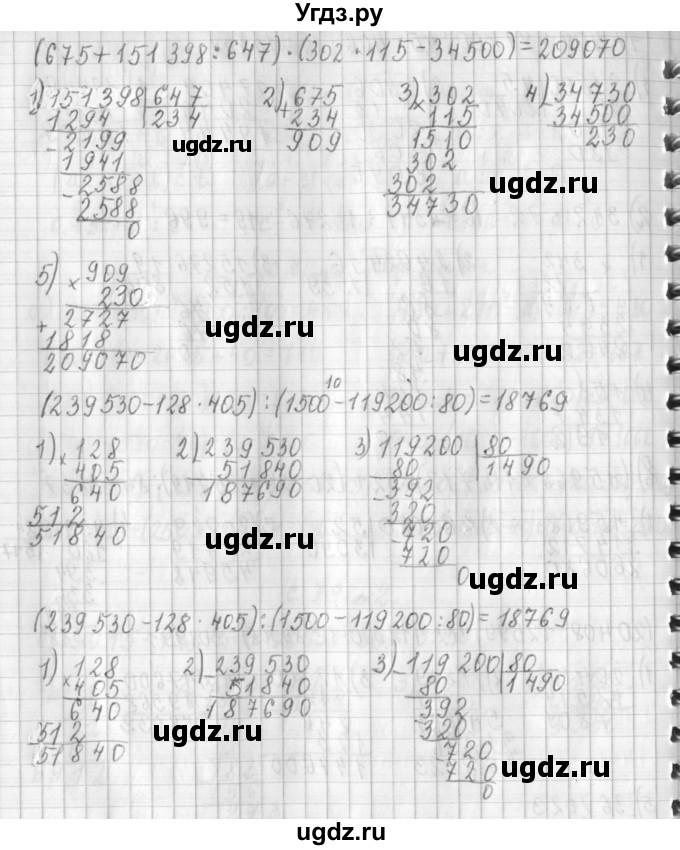 Угдз.ру
(675+151 398:647)·(302·115-34500)=209070
1) 151 398 647 2) 675 3) 302 4) 34730
1294 234 + 234 × 115 34500
- 2199 909 1510 230
1941 302
- 2588 302
2588 34730
0
ugdz.ru ugdz.ru
5) × 909
230
+ 2727
1818
209070
ugdz.ru ugdz.ru
10
(239 530-128·405):(1500-119200:80)=18769
1) × 128 2) 239 530 3) 119200 80
405 51840 80 1490
640 187690 - 392
512 320
51840 - 720
720
0
ugdz.ru ugdz.ru
(239 530-128·405):(1500-119200:80)=18769
1) × 128 2) - 239 530 3) - 119 200 80
405 51840 80 1490
640 187690 392
512 320
51840 720
720
0
ugdz.ru ugdz.ru
ugdz.ru